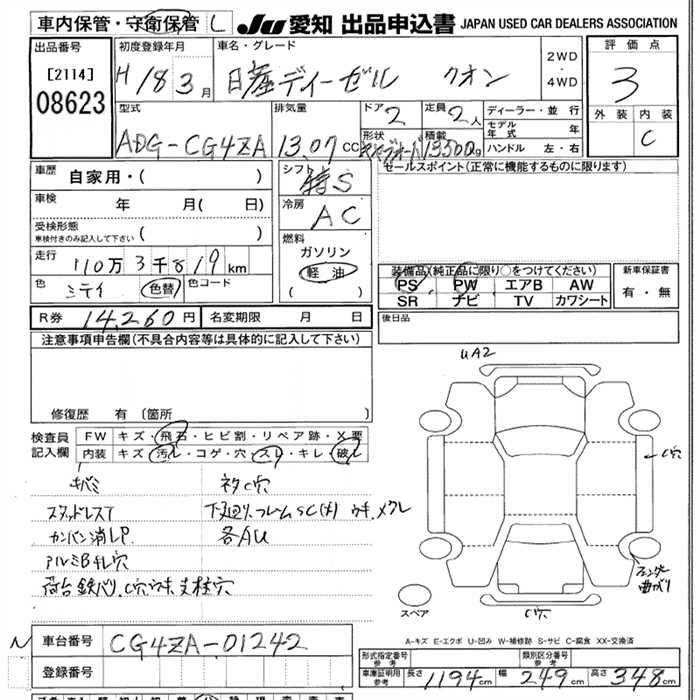 車内保管・守衛保管 L JU 愛知 出品申込書 JAPAN USED CAR DEALERS ASSOCIATION
出品番号 初度登録年月 車名・グレード 2WD・4WD 評価点
[2114] H18 3月 日産ディーゼル クオン 3
08623
型式 排気量 ドア 2 定員 2人 ディーラー・並行 外装 内装
ADG-CG4ZA 13.07cc 形状 積載 13500kg モデル年式 年 C
ハンドル 左・右
車歴 自家用・( ) シフト S セールスポイント(正常に機能するものに限ります)
車検 年 月( 日) 冷房 AC
受検形態 車検付きのみ記入して下さい ( ) 燃料
走行 110万3千819km ガソリン 軽油 ( )
色 ミテイ 色替 色コード
装備品(純正品に限り○をつけてください) 新車保証書
PS PW エアB AW 有・無
SR ナビ TV カワシート
R券 14,260円 名変期限 月 日 後日品
注意事項申告欄(不具合内容等は具体的に記入して下さい)
UA2
修復歴 有 〔箇所 〕
検査員記入欄 FW キズ・飛石・ヒビ割・リペア跡・X要
内装 キズ・汚レ・コゲ・穴・スレ・キレ・破レ
C穴
キバミ ネタC穴
スタッドレスT 下廻り、フレームSC(大) ウキ、メクレ
カンバン消LP 各AU
アルミBキレ穴
荷台鉄バリ、C穴ウキ支柱穴
フェンダー曲がり
スペア C穴
A-キズ E-エクボ U-凹み W-補修跡 S-サビ C-腐食 XX-交換済
N 車台番号 CG4ZA-01242
登録番号
形式指定番号 参考 類別区分番号 参考
車庫証明用 参考 長さ 1194cm 幅 249cm 高さ 348cm